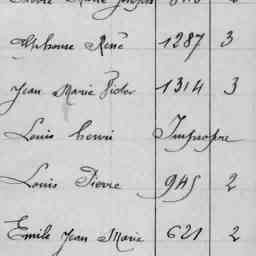 Alphonse René 1287 3
Jean Marie 1314 3
Louis henri Impropre
Louis Pierre 945 2
Emile Jean Marie 621 2